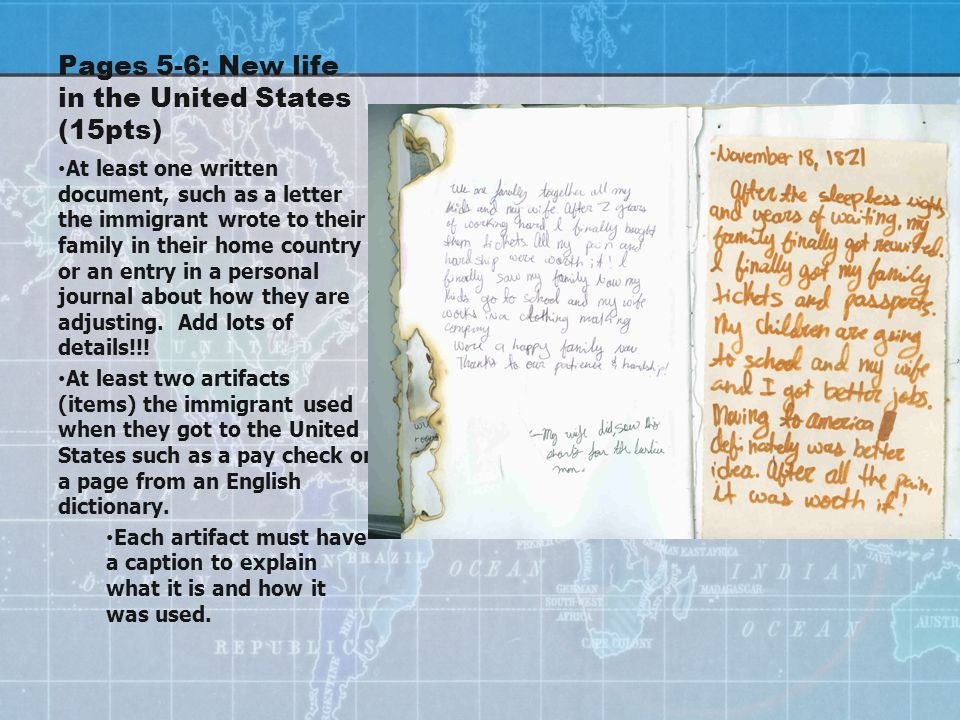 Pages 5-6: New life
in the United States
(15pts)
•At least one written
document, such as a letter
the immigrant wrote to their
family in their home country
or an entry in a personal
journal about how they are
adjusting. Add lots of
details!!!
•At least two artifacts
(items) the immigrant used
when they got to the United
States such as a pay check or
a page from an English
dictionary.
•Each artifact must have
a caption to explain
what it is and how it
was used.
We are finally together all my
kids and my wife. After 2 years
of working hard, I finally bought
them tickets. All my pain and
hardship were worth it! I
finally saw my family. Now my
kids go to school and my wife
works in a clothing making
company
Were a happy family now
Thanks to our patience & hardship!
My wife did, saw this
shorts for the
men.
-November 18, 1821
After the sleepless nights
and years of waiting, my
family finally got reunited.
I finally got my family
tickets and passports.
My children are going
to school and my wife
and I got better jobs.
Moving to america
definately was better
idea. After all the pain,
it was worth it!
BRAZIL
OCEAN
REPUBLICS
ARGENTINE
GERMAN
SOUTH-WEST
AFRICA
CAPE COLONY
GERMAN EAST AFRICA
MADAGASCAR
INDIAN
OCEAN